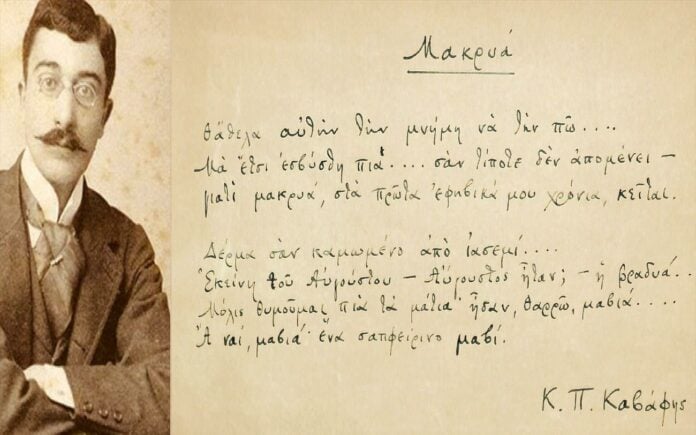 Μακρυά
Θάθελα αὐτὴν τὴν μνήμη νὰ τὴν πῶ....
Μὰ ἔτσι ἐσβύσθη πιὰ.... σὰν τίποτε δὲν ἀπομένει —
γιατὶ μακρυά, στὰ πρῶτα ἐφηβικά μου χρόνια, κεῖται.
Δέρμα σὰν καμωμένο ἀπὸ ἰασεμί....
Ἐκείνη τοῦ Αὐγούστου — Αὔγουστος ἦταν; — ἡ βραδυά..
Μόλις θυμοῦμαι πιὰ τὰ μάτια· ἦσαν, θαρρῶ, μαβιά....
Ἀ ναί, μαβιά· ἕνα σαπφείρινο μαβί.
Κ. Π. Καβάφης